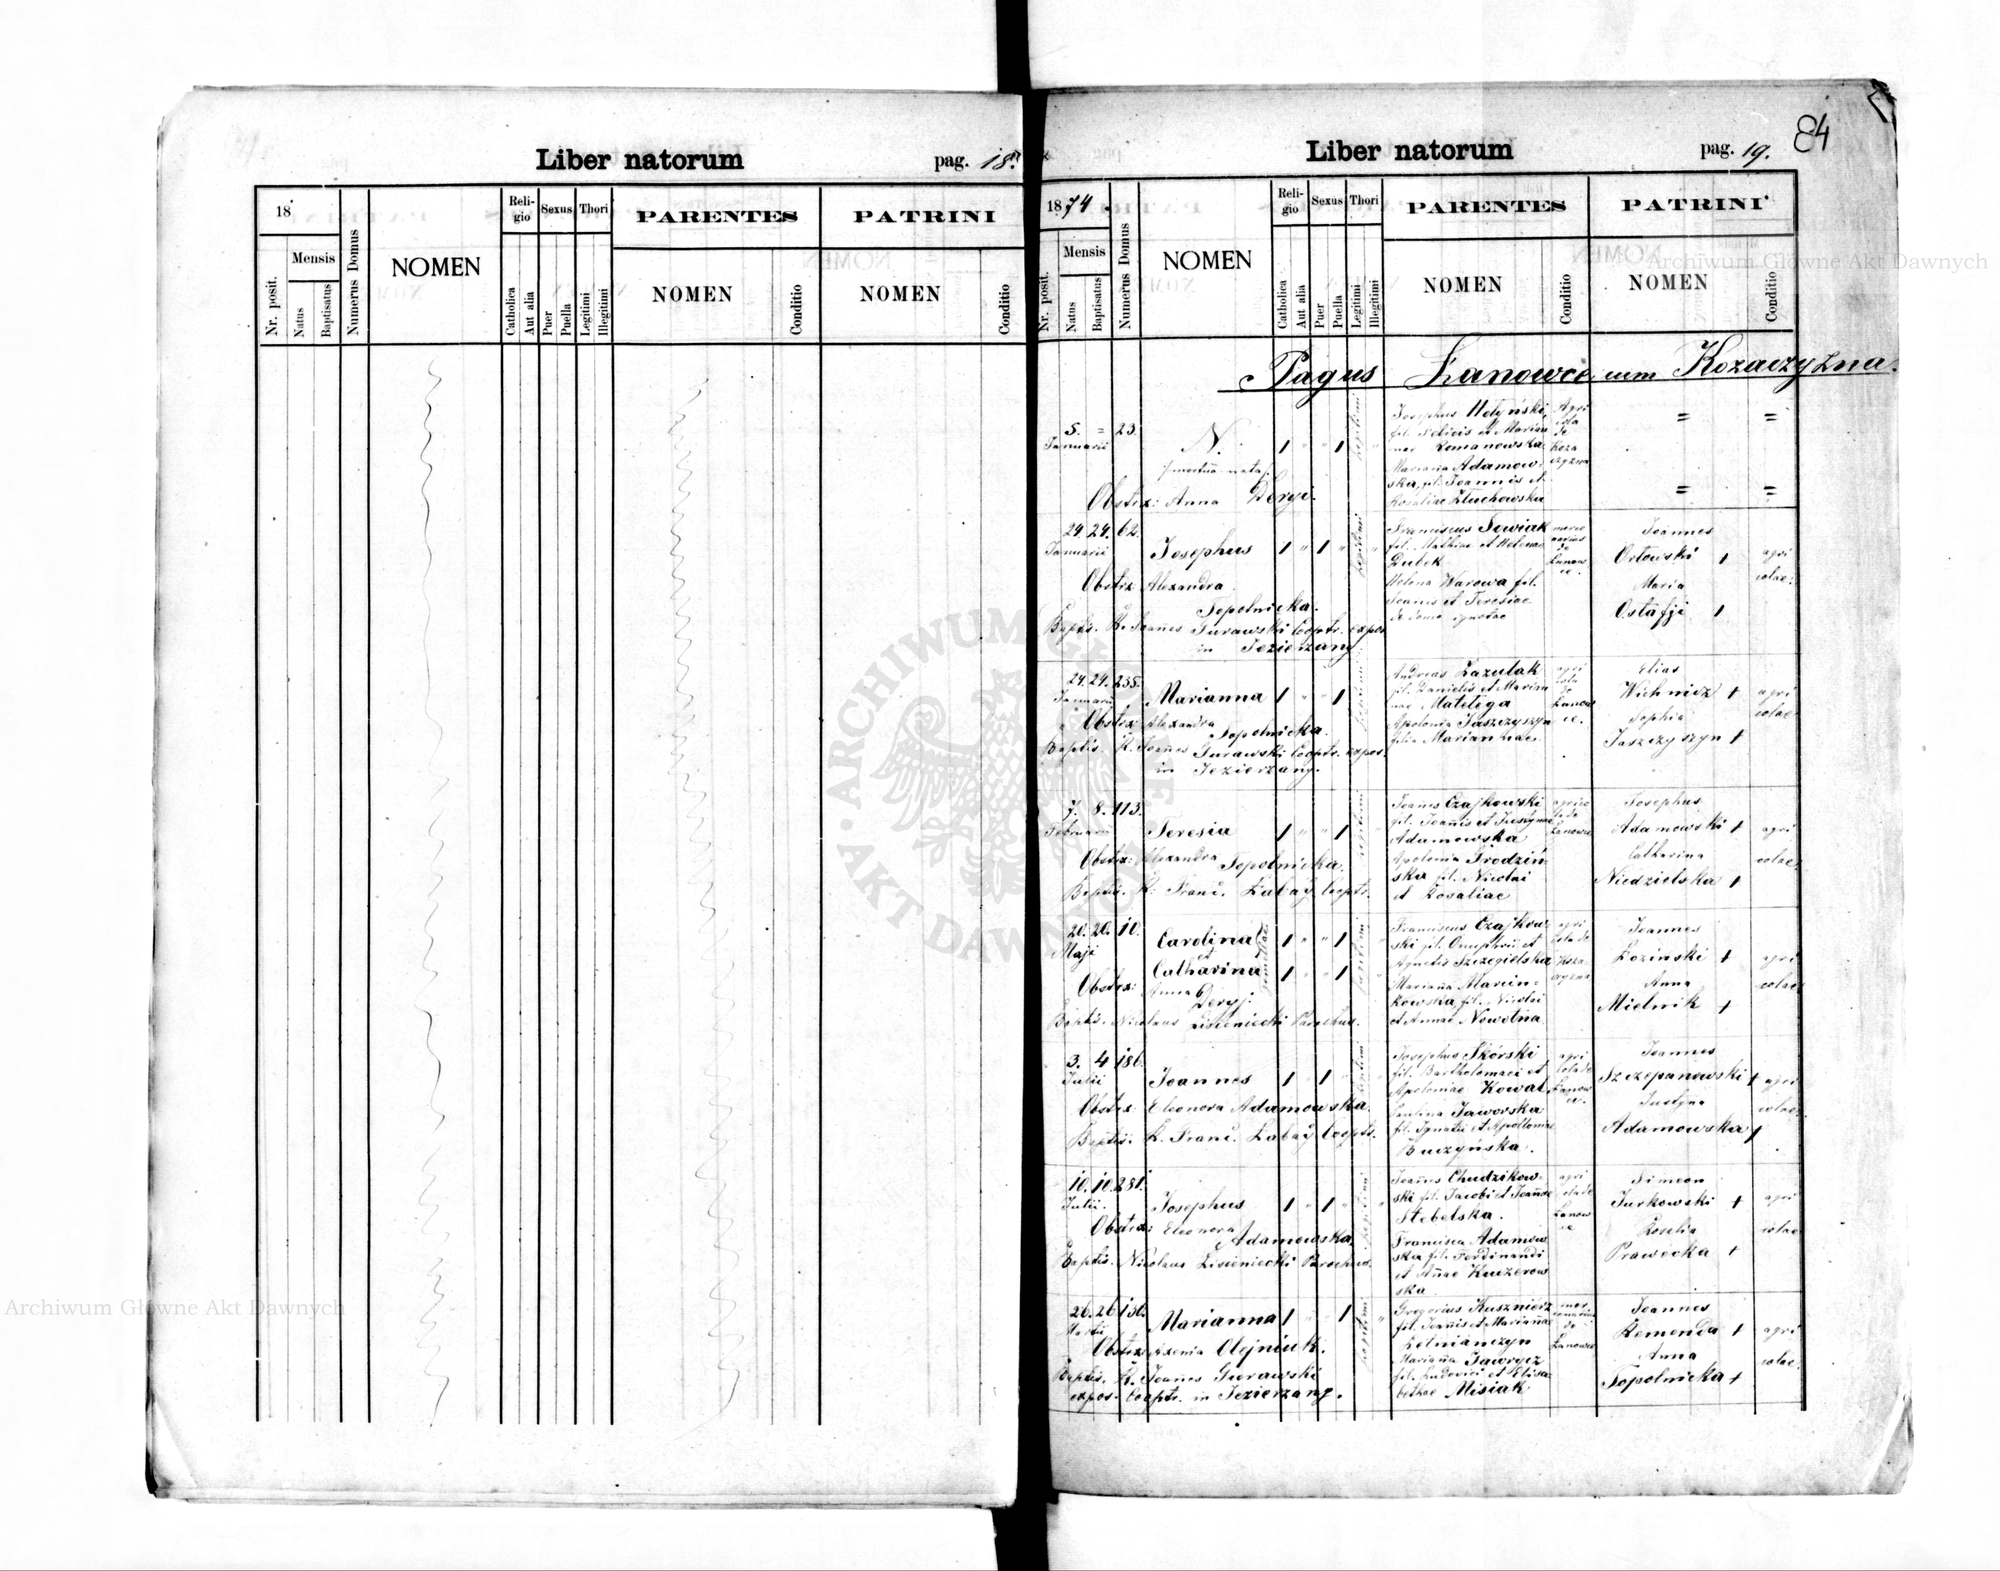 Liber natorum
pag. 18.
18
Nr. posit.
Mensis
Natus
Baptisatus
Numerus Domus
NOMEN
Reli-
gio
Catholica
Aut alia
Sexus
Puer
Puella
Thori
Legitimi
Illegitimi
PARENTES
NOMEN
Conditio
PATRINI
NOMEN
Conditio
Liber natorum
pag. 19.
84
1874.
Nr. posit.
Mensis
Natus
Baptisatus
Numerus Domus
NOMEN
Reli-
gio
Catholica
Aut alia
Sexus
Puer
Puella
Thori
Legitimi
Illegitimi
PARENTES
NOMEN
Conditio
PATRINI
NOMEN
Conditio
Pagus Łanowce cum Kozaczyzna.
5. = 23.
Januarii
N.
Obstx: Anna Deryj.
Josephus
fil. Felicis et Marian
nae Romanowska
Marianna Adamow-
ska, fil. Joannis et
Rosaliae
Agri
cola
de
Koza
czyzna
= =
= =
24. 24. 62.
Januarii
Josephus 1 " 1 " "
Obstx Alexandra
Topolnicka.
Baptis. R. Joañes Gurawski Cooptr. expos.
in Jezierzany
Franciscus Sowiak
fil. Mathiae et Helenae
Dubek
Helena Warowa fil.
Joanis et Teresiae
de domo ignotae
merce
narius
de
Łanow
ce.
Joannes
Orłowski +
Maria
Ostafji 1
agri
colae.
24. 24. 235.
Januarii
Marianna 1 " " 1
Obstx: Alexandra
Topolnicka.
Baptis. R. Joañes Gurawski Cooptr. expos.
in Jezierzany.
Andreas Łazulak
fil. Danielis et Marian
nae Matelega
Apolonia Jaszczyszyn
filia Mariannae.
agri
cola
de
Łanow
ce.
Elias
Wichnicz +
Sophia
Jaszczyszyn +
agri
colae.
7. 8. 113.
Februarii
Teresia 1 " " 1
Obstx: Alexandra Topolnicka.
Baptis. R: Franč. Łabaÿ Cooptr.
Joañes Czajkowski
fil. Joañis et Justynae
Adamowska
Apolonia Grodziń-
ska fil. Nicolai
et Rosaliae
agrico
la de
Łanowce
Josephus
Adamowski +
Catharina
Niedzielska +
agri
colae.
20. 20. 10.
Maji
Carolina 1 " " 1
et
Catharina 1 " " 1
gemellae
Obstx: Anna Deryj.
Baptis. Nicolaus Lisieniecki Parochus.
Franciscus Czajkow-
ski fil. Onuphrii et
Agnetis Szczegielska
Mariaña Marcin-
kowska fil. Nicolai
et Annae Nowotna
agri
cola de
Koza-
czyzna
Joannes
Łoziński +
Anna
Mielnik +
agri
colae.
3. 4 186.
Julii
Joannes 1 " 1 "
Obstx: Eleonora Adamowska.
Baptis. R. Franč. Łabaÿ Cooptr.
Josephus Skórski
fil. Bartholomaei et
Apoloniae Kowal
Paulina Jaworska
fil. Ignatii et Apolloniae
Buczyńska.
agri
cola de
Łanow
ce.
Joannes
Szczepanowski +
Justyna
Adamowska +
agri
colae.
10. 10. 281.
Julii.
Josephus 1 " 1 "
Obstx: Eleonora
Adamowska.
Baptis. Nicolaus Lisieniecki Parochus.
Joañes Chudzikow-
ski fil. Jacobi et Joañae
Stebelska.
Francisca Adamow
ska fil. Ferdinandi
et Añae Kuczerow
ska.
agri
cola de
Łanow
ce
Simeon
Jurkowski +
Rosalia
Prawecka +
agri
colae.
26. 26 130.
Marianna 1 " " 1 "
Obstx: Axenia Olejniuk.
Baptis. R. Joañes Gurawski
expos. Cooptr. in Jezierzany.
Gregorius Kusznierz
fil. Joañis et Mariañae
Letnianczyn
Mariaña Jaworcz
fil. Ludovici et Elisa-
bethae Misiak
mer
cenarius
de
Łanowce
Joannes
Remenda +
Anna
Topolnicka +
agri
colae.
Archiwum Główne Akt Dawnych
Archiwum Główne Akt Dawnych
ARCHIWUM GŁÓWNE
AKT DAWNYCH